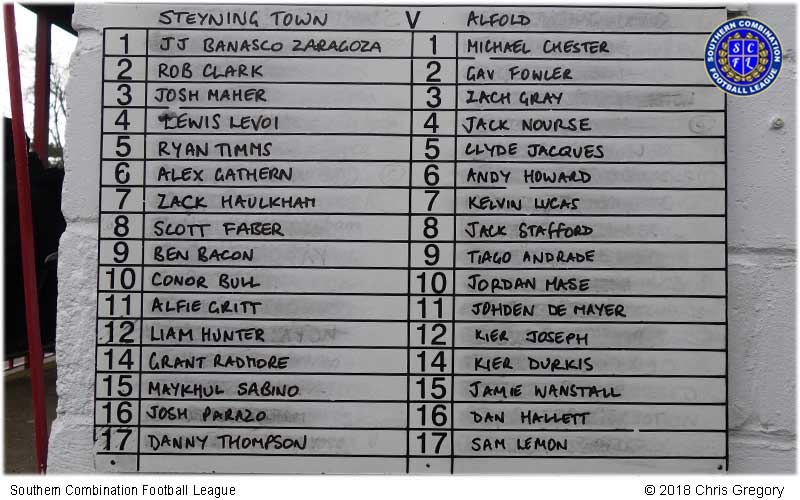 STEYNING TOWN V ALFOLD
1 JJ BANASCO ZARAGOZA 1 MICHAEL CHESTER
2 ROB CLARK 2 GAV FOWLER
3 JOSH MAHER 3 ZACH GRAY
4 LEWIS LEVOI 4 JACK NOURSE
5 RYAN TIMMS 5 CLYDE JACQUES
6 ALEX GATHERN 6 ANDY HOWARD
7 ZACK HAULKHAM 7 KELVIN LUCAS
8 SCOTT FABER 8 JACK STAFFORD
9 BEN BACON 9 TIAGO ANDRADE
10 CONOR BULL 10 JORDAN MASE
11 ALFIE GRITT 11 JOHDEN DE MAYER
12 LIAM HUNTER 12 KIER JOSEPH
14 GRANT RADMORE 14 KIER DURKIS
15 MAYKHUL SABINO 15 JAMIE WANSTALL
16 JOSH PARAZO 16 DAN HALLETT
17 DANNY THOMPSON 17 SAM LEMON
SOUTHERN COMBINATION
SCFL
FOOTBALL LEAGUE
Southern Combination Football League © 2018 Chris Gregory